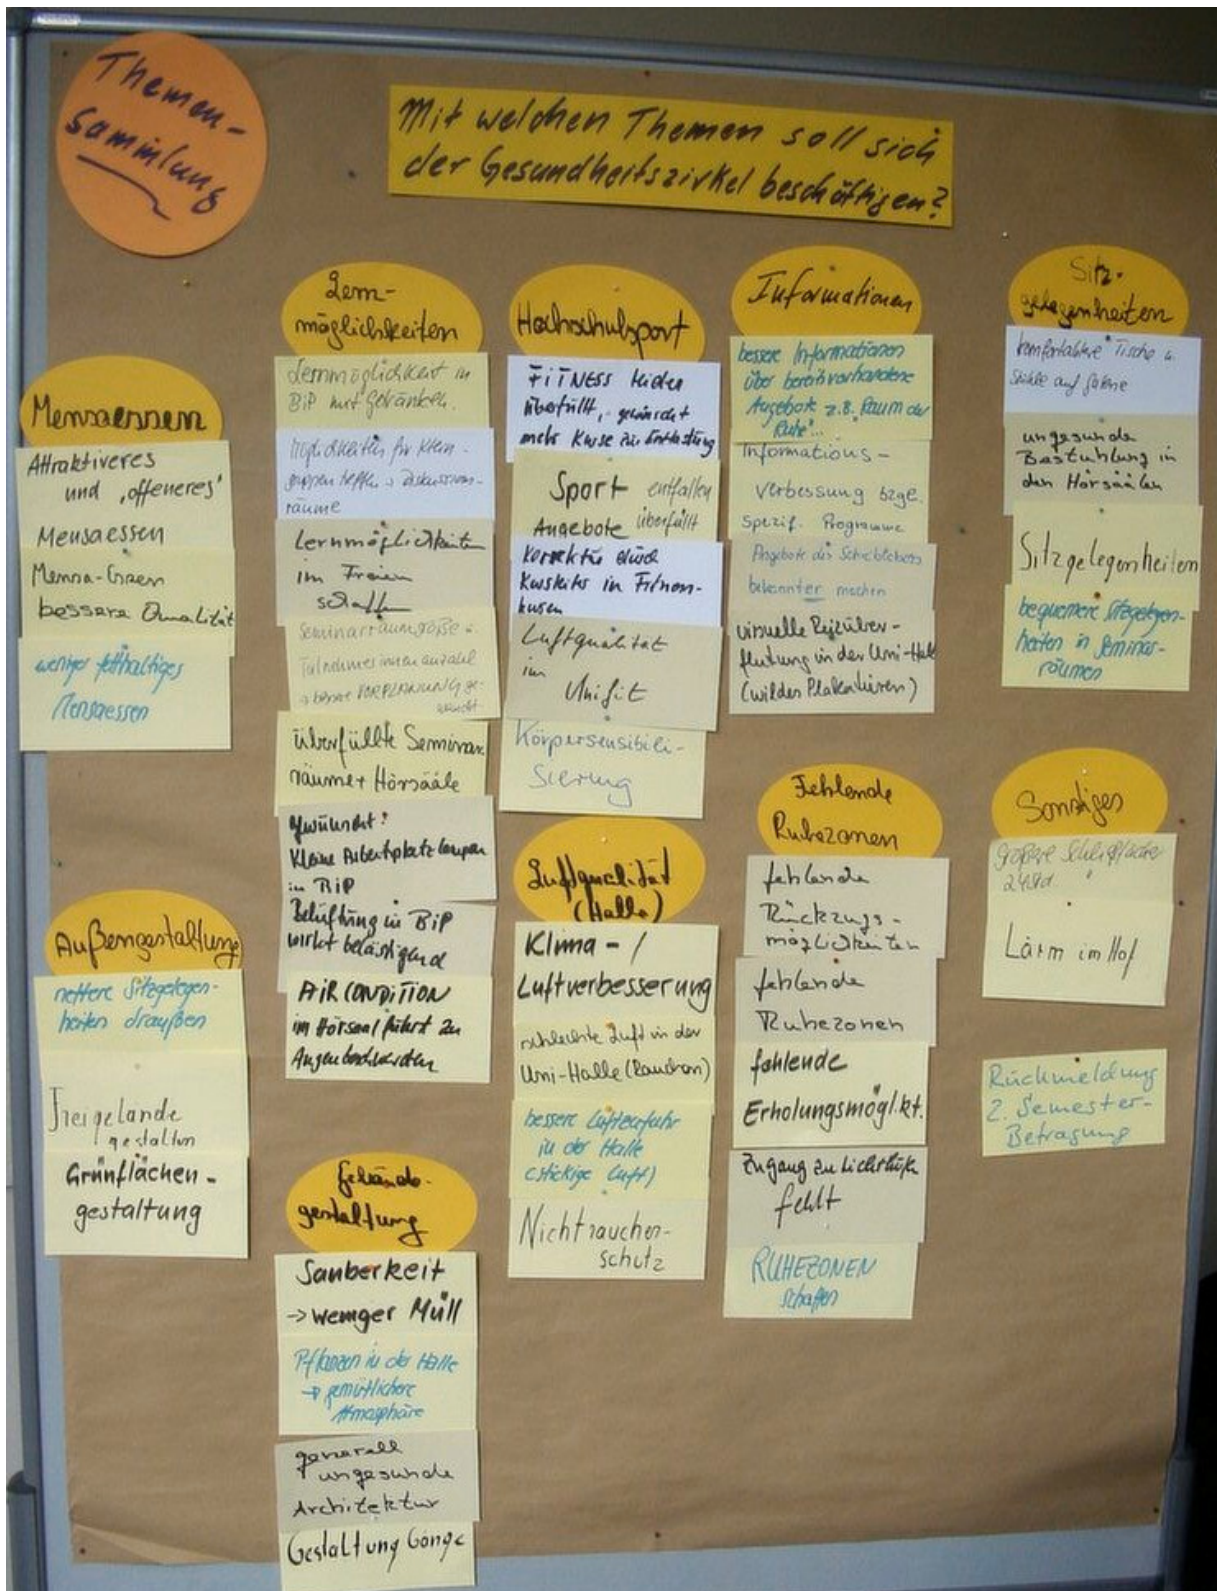 Themen-
sammlung
Mit welchen Themen soll sich
der Gesundheitszirkel beschäftigen?
Mensaessen
Attraktiveres
und „offeneres“
Mensaessen
Mensa-Essen
bessere Qualität
weniger fetthaltiges
Mensaessen
Außengestaltung
nettere Sitzgelegen-
heiten draußen
Freigelände
gestalten
Grünflächen-
gestaltung
Lern-
möglichkeiten
Lernmöglichkeit in
BiP mit Getränken.
Möglichkeiten für Klein-
gruppen treffen Diskussions-
räume
Lernmöglichkeiten
im Freien
schaffen
Seminarraumgröße
Teilnehmerinnenanzahl
bessere VORPLANUNG ge-
wünscht
überfüllte Seminar-
räume + Hörsääle
gewünscht:
kleine Arbeitsplatzlampen
in BiP
Belüftung in BiP
wirkt belästigend
AIR CONDITION
im Hörsaal führt zu
Augenbeschwerden
Gebäude-
gestaltung
Sauberkeit
→ weniger Müll
Pflanzen in der Halle
→ gemütlichere
Atmosphäre
generell
ungesunde
Architektur
Gestaltung Gänge
Hochschulsport
FITNESS leider
überfüllt, gewünscht
mehr Kurse zur Entlastung
Sport entfallen
Angebote überfüllt
Korrektur durch
Kursleiter in Fitness-
kursen
Luftqualität
im
Unifit
Körpersensibili-
sierung
Luftqualität
(Halle)
Klima- /
Luftverbesserung
schlechte Luft in der
Uni-Halle (Rauchen)
bessere Luftzufuhr
in der Halle
(stickige Luft)
Nichtraucher-
schutz
Informationen
bessere Informationen
über bereits vorhandene
Angebote z.B. "Raum der
Ruhe"...
Informations-
verbessung bzgl.
spezif. Programme
Angebote des Schreiblabors
bekannter machen
visuelle Reizüber-
flutung in der Uni-Halle
(wildes Plakatieren)
Fehlende
Ruhezonen
fehlende
Rückzugs-
möglichkeiten
fehlende
Ruhezonen
fehlende
Erholungsmöglkt.
Zugang zu Lichthöfen
fehlt
RUHEZONEN
schaffen
Sitz-
gelegenheiten
komfortablere Tische u.
Stühle auf Galerie
ungesunde
Bestuhlung in
den Hörsäälen
Sitzgelegenheiten
bequemere Sitzgelegen-
heiten in Seminar-
räumen
Sonstiges
größere Schließfächer
24Std.
Lärm im Hof
Rückmeldung
2. Semester-
Befragung